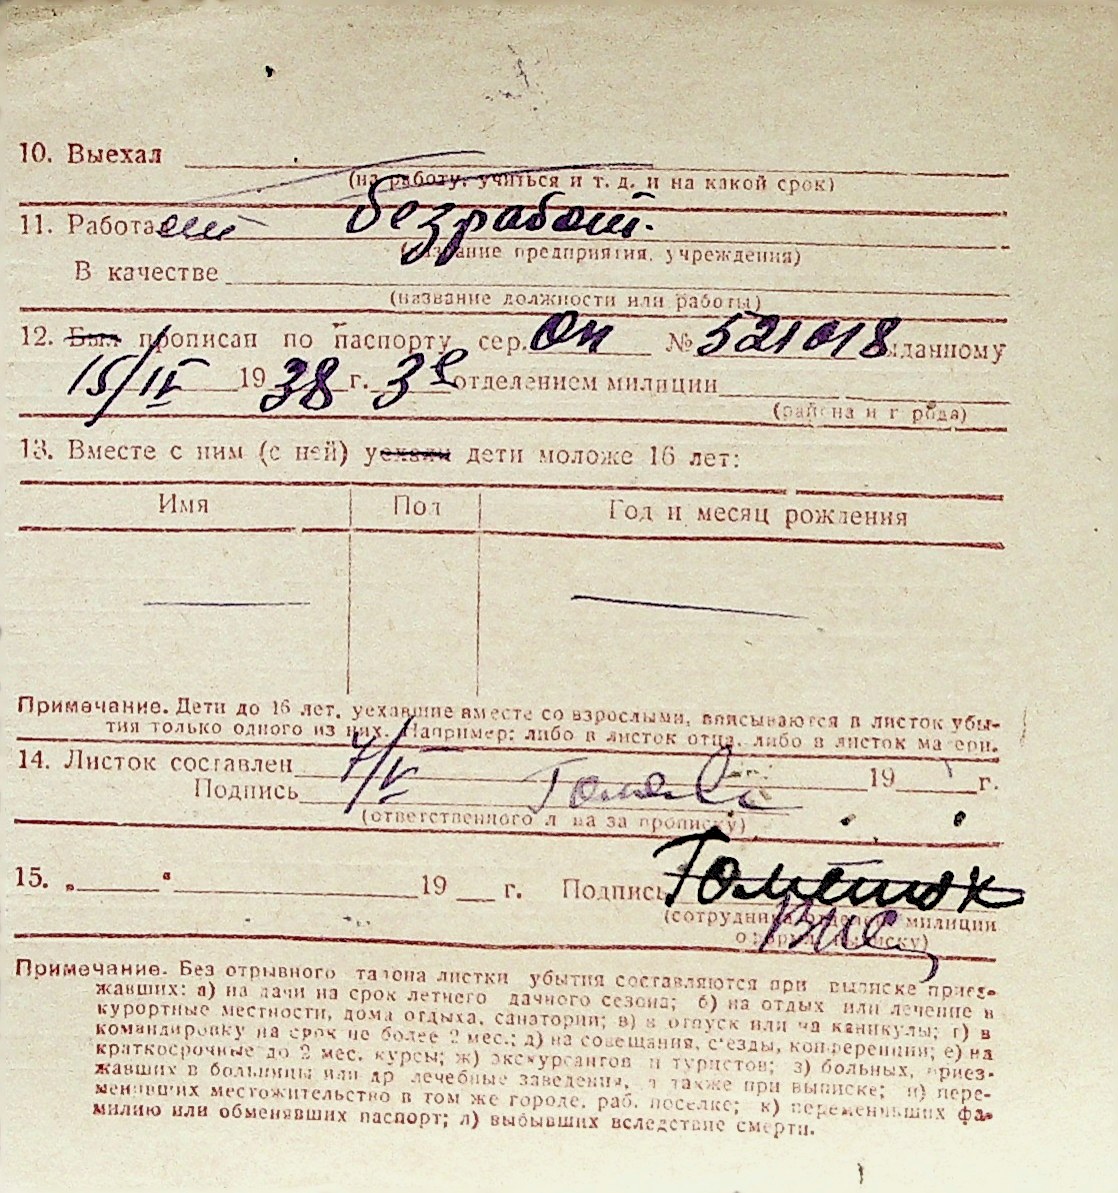 10. Выехал
(на работу, учиться и т. д. и на какой срок)
11. Работает безработ.
(название предприятия, учреждения)
В качестве
(название должности или работы)
12. Был прописан по паспорту сер. ОН № 521018 выданному
15/IV 1938 г. 3е отделением милиции
(района и города)
13. Вместе с ним (с ней) уехали дети моложе 16 лет:
Имя Пол Год и месяц рождения
Примечание. Дети до 16 лет, уехавшие вместе со взрослыми, вписываются в листок убы-
тия только одного из них. Например: либо в листок отца, либо в листок матери.
14. Листок составлен 7/V 19 г.
Подпись
(ответственного лица за прописку)
15. „ “ 19 г. Подпись
(сотрудника отделен. милиции
оформ. выписку)
Примечание. Без отрывного талона листки убытия составляются при выписке приез-
жавших: а) на дачи на срок летнего дачного сезона; б) на отдых или лечение в
курортные местности, дома отдыха, санатории; в) в отпуск или на каникулы; г) в
командировку на срок не более 2 мес.; д) на совещания, с'езды, конференции; е) на
краткосрочные до 2 мес. курсы; ж) экскурсантов и туристов; з) больных, приез-
жавших в больницы или др лечебные заведения, а также при выписке; и) пере-
менивших местожительство в том же городе, раб. поселке; к) переменивших фа-
милию или обменявших паспорт; л) выбывших вследствие смерти.